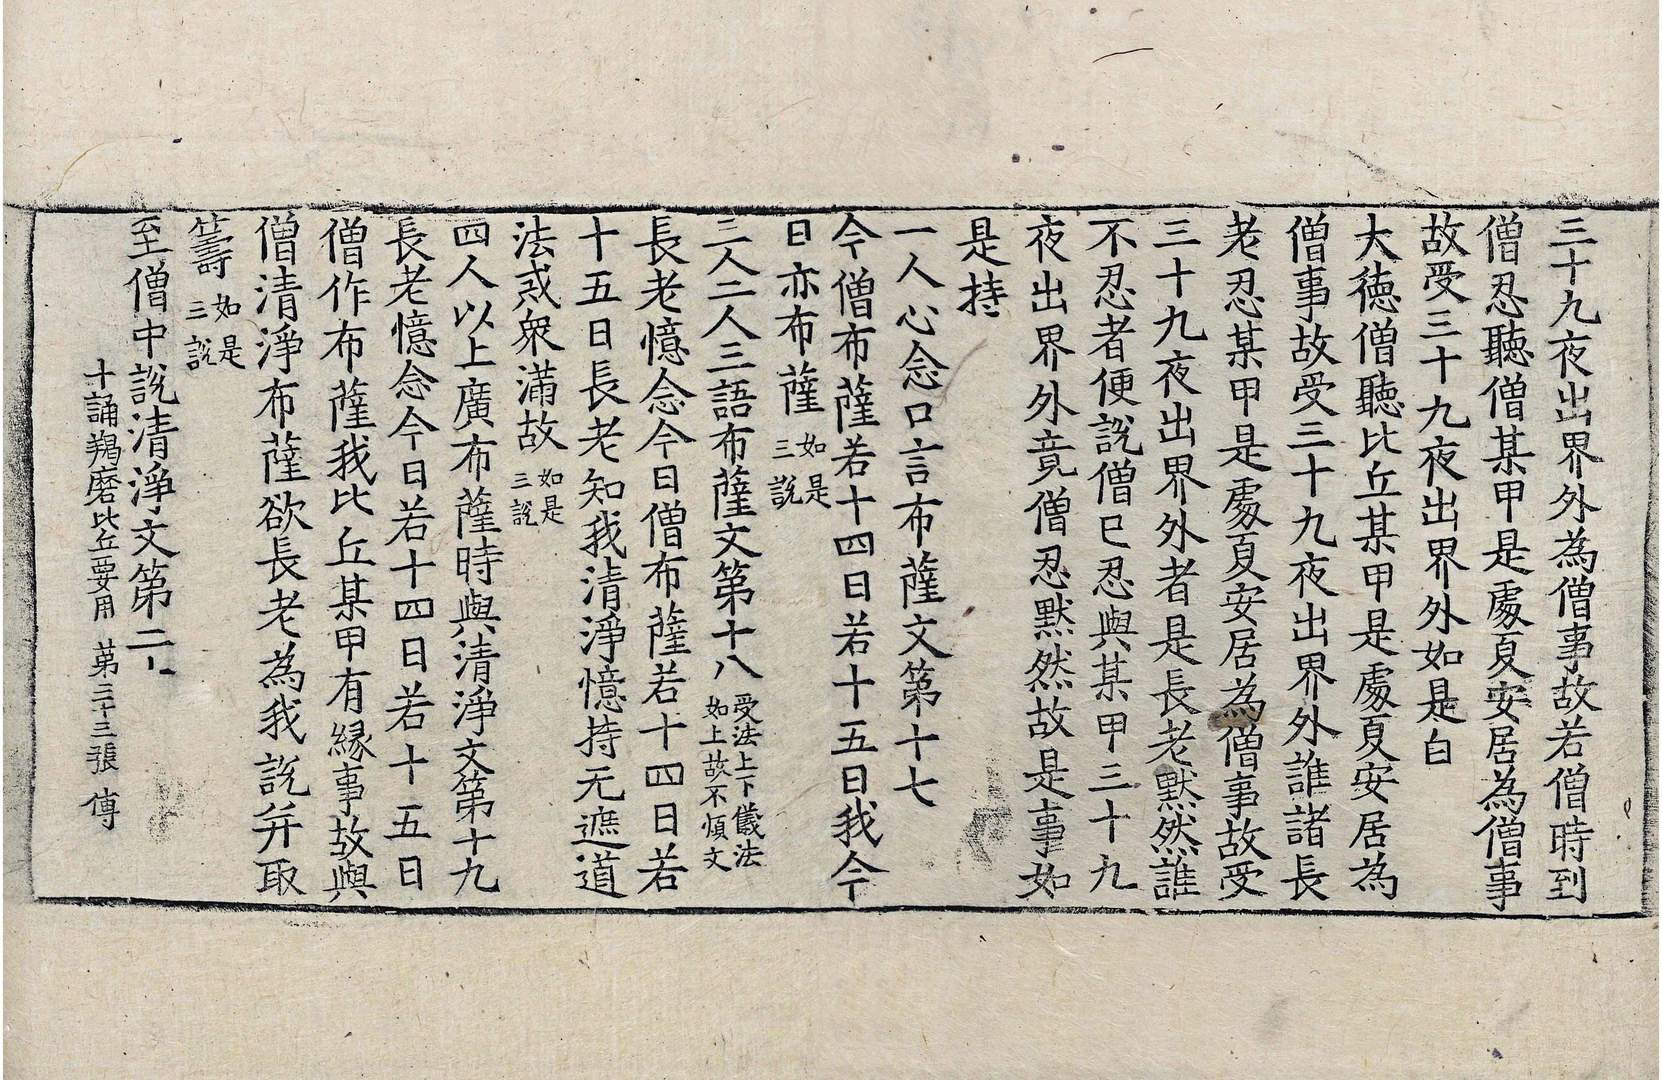 三十九夜出界外為僧事故若僧時到
僧忍聽僧某甲是處夏安居為僧事
故受三十九夜出界外如是白
大德僧聽比丘某甲是處夏安居為
僧事故受三十九夜出界外誰諸長
老忍某甲是處夏安居為僧事故受
三十九夜出界外者是長老默然誰
不忍者便說僧已忍與某甲三十九
夜出界外竟僧忍默然故是事如
是持
一人心念口言布薩文第十七
今僧布薩若十四日若十五日我今
日亦布薩如是三說
三人二人三語布薩文第十八受法上下儀法如上故不煩文
長老憶念今日僧布薩若十四日若
十五日長老知我清淨憶持无遮道
法或衆滿故如是三說
四人以上廣布薩時與清淨文第十九
長老憶念今日若十四日若十五日
僧作布薩我比丘某甲有緣事故與
僧清淨布薩欲長老為我說并取
籌如是三說
至僧中說清淨文第二十
十誦羯磨比丘要用　第三十三張　傅